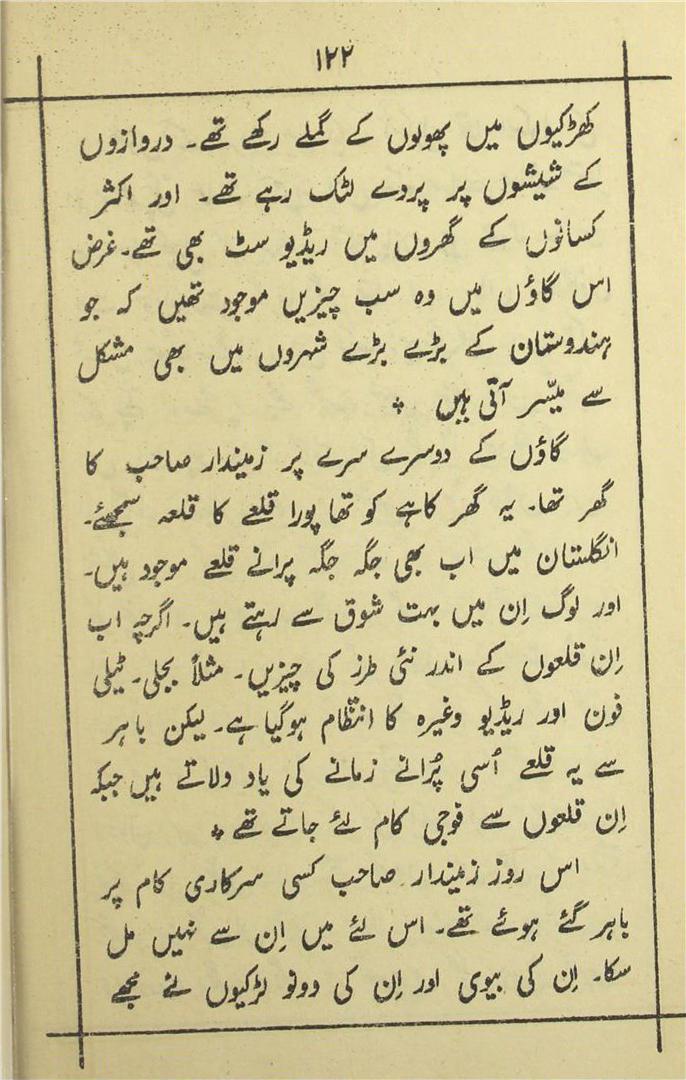 ۱۲۲
کھڑکیوں میں پھولوں کے گملے رکھے تھے۔ دروازوں
کے شیشوں پر پردے لٹک رہے تھے۔ اور اکثر
کسانوں کے گھروں میں ریڈیو سٹ بھی تھے۔ غرض
اس گاؤں میں وہ سب چیزیں موجود تھیں کہ جو
ہندوستان کے بڑے بڑے شہروں میں بھی مشکل
سے میسّر آتی ہیں ٭
گاؤں کے دوسرے سرے پر زمیندار صاحب کا
گھر تھا۔ یہ گھر کاہے کو تھا پورا قلعے کا قلعہ سمجھئے۔
انگلستان میں اب بھی جگہ جگہ پرانے قلعے موجود ہیں۔
اور لوگ اِن میں بہت شوق سے رہتے ہیں۔ اگرچہ اب
اِن قلعوں کے اندر نئی طرز کی چیزیں۔ مثلاً بجلی۔ ٹیلی
فون اور ریڈیو وغیرہ کا انتظام ہوگیا ہے۔ لیکن باہر
سے یہ قلعے اُسی پُرانے زمانے کی یاد دلاتے ہیں جبکہ
اِن قلعوں سے فوجی کام لئے جاتے تھے ٭
اس روز زمیندار صاحب کسی سرکاری کام پر
باہر گئے ہوئے تھے۔ اس لئے میں اِن سے نہیں مل
سکا۔ اِن کی بیوی اور اِن کی دونو لڑکیوں نے مجھے